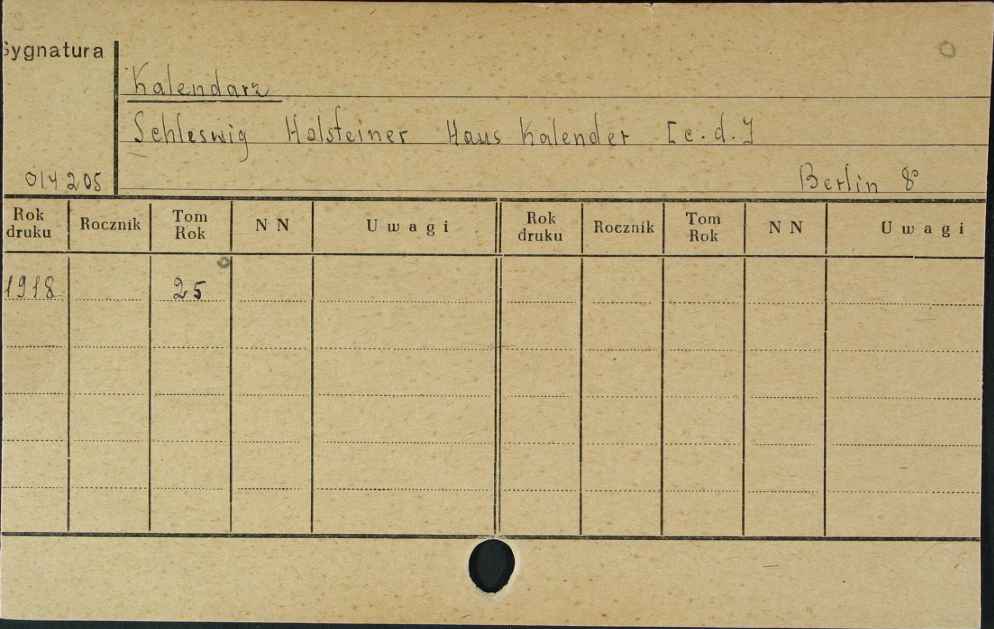 Sygnatura
Kalendarz
Schleswig Holsteiner Haus Kalender [c.d.]
014205
Berlin 8°
Rok druku Rocznik Tom Rok N N Uwagi Rok druku Rocznik Tom Rok N N Uwagi
1918 25